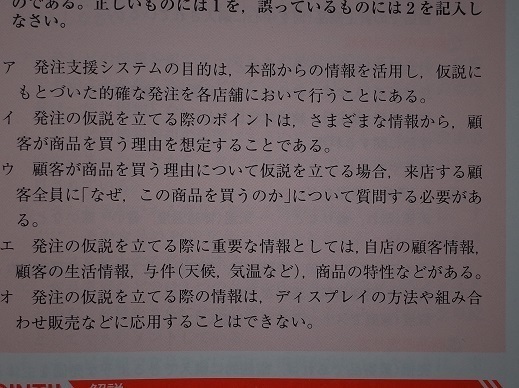 のである。正しいものには1を，誤っているものには2を記入し
なさい。
ア　発注支援システムの目的は，本部からの情報を活用し，仮説に
もとづいた的確な発注を各店舗において行うことにある。
イ　発注の仮説を立てる際のポイントは，さまざまな情報から，顧
客が商品を買う理由を想定することである。
ウ　顧客が商品を買う理由について仮説を立てる場合，来店する顧
客全員に「なぜ，この商品を買うのか」について質問する必要があ
る。
エ　発注の仮説を立てる際に重要な情報としては，自店の顧客情報，
顧客の生活情報，与件（天候，気温など），商品の特性などがある。
オ　発注の仮説を立てる際の情報は，ディスプレイの方法や組み合
わせ販売などに応用することはできない。